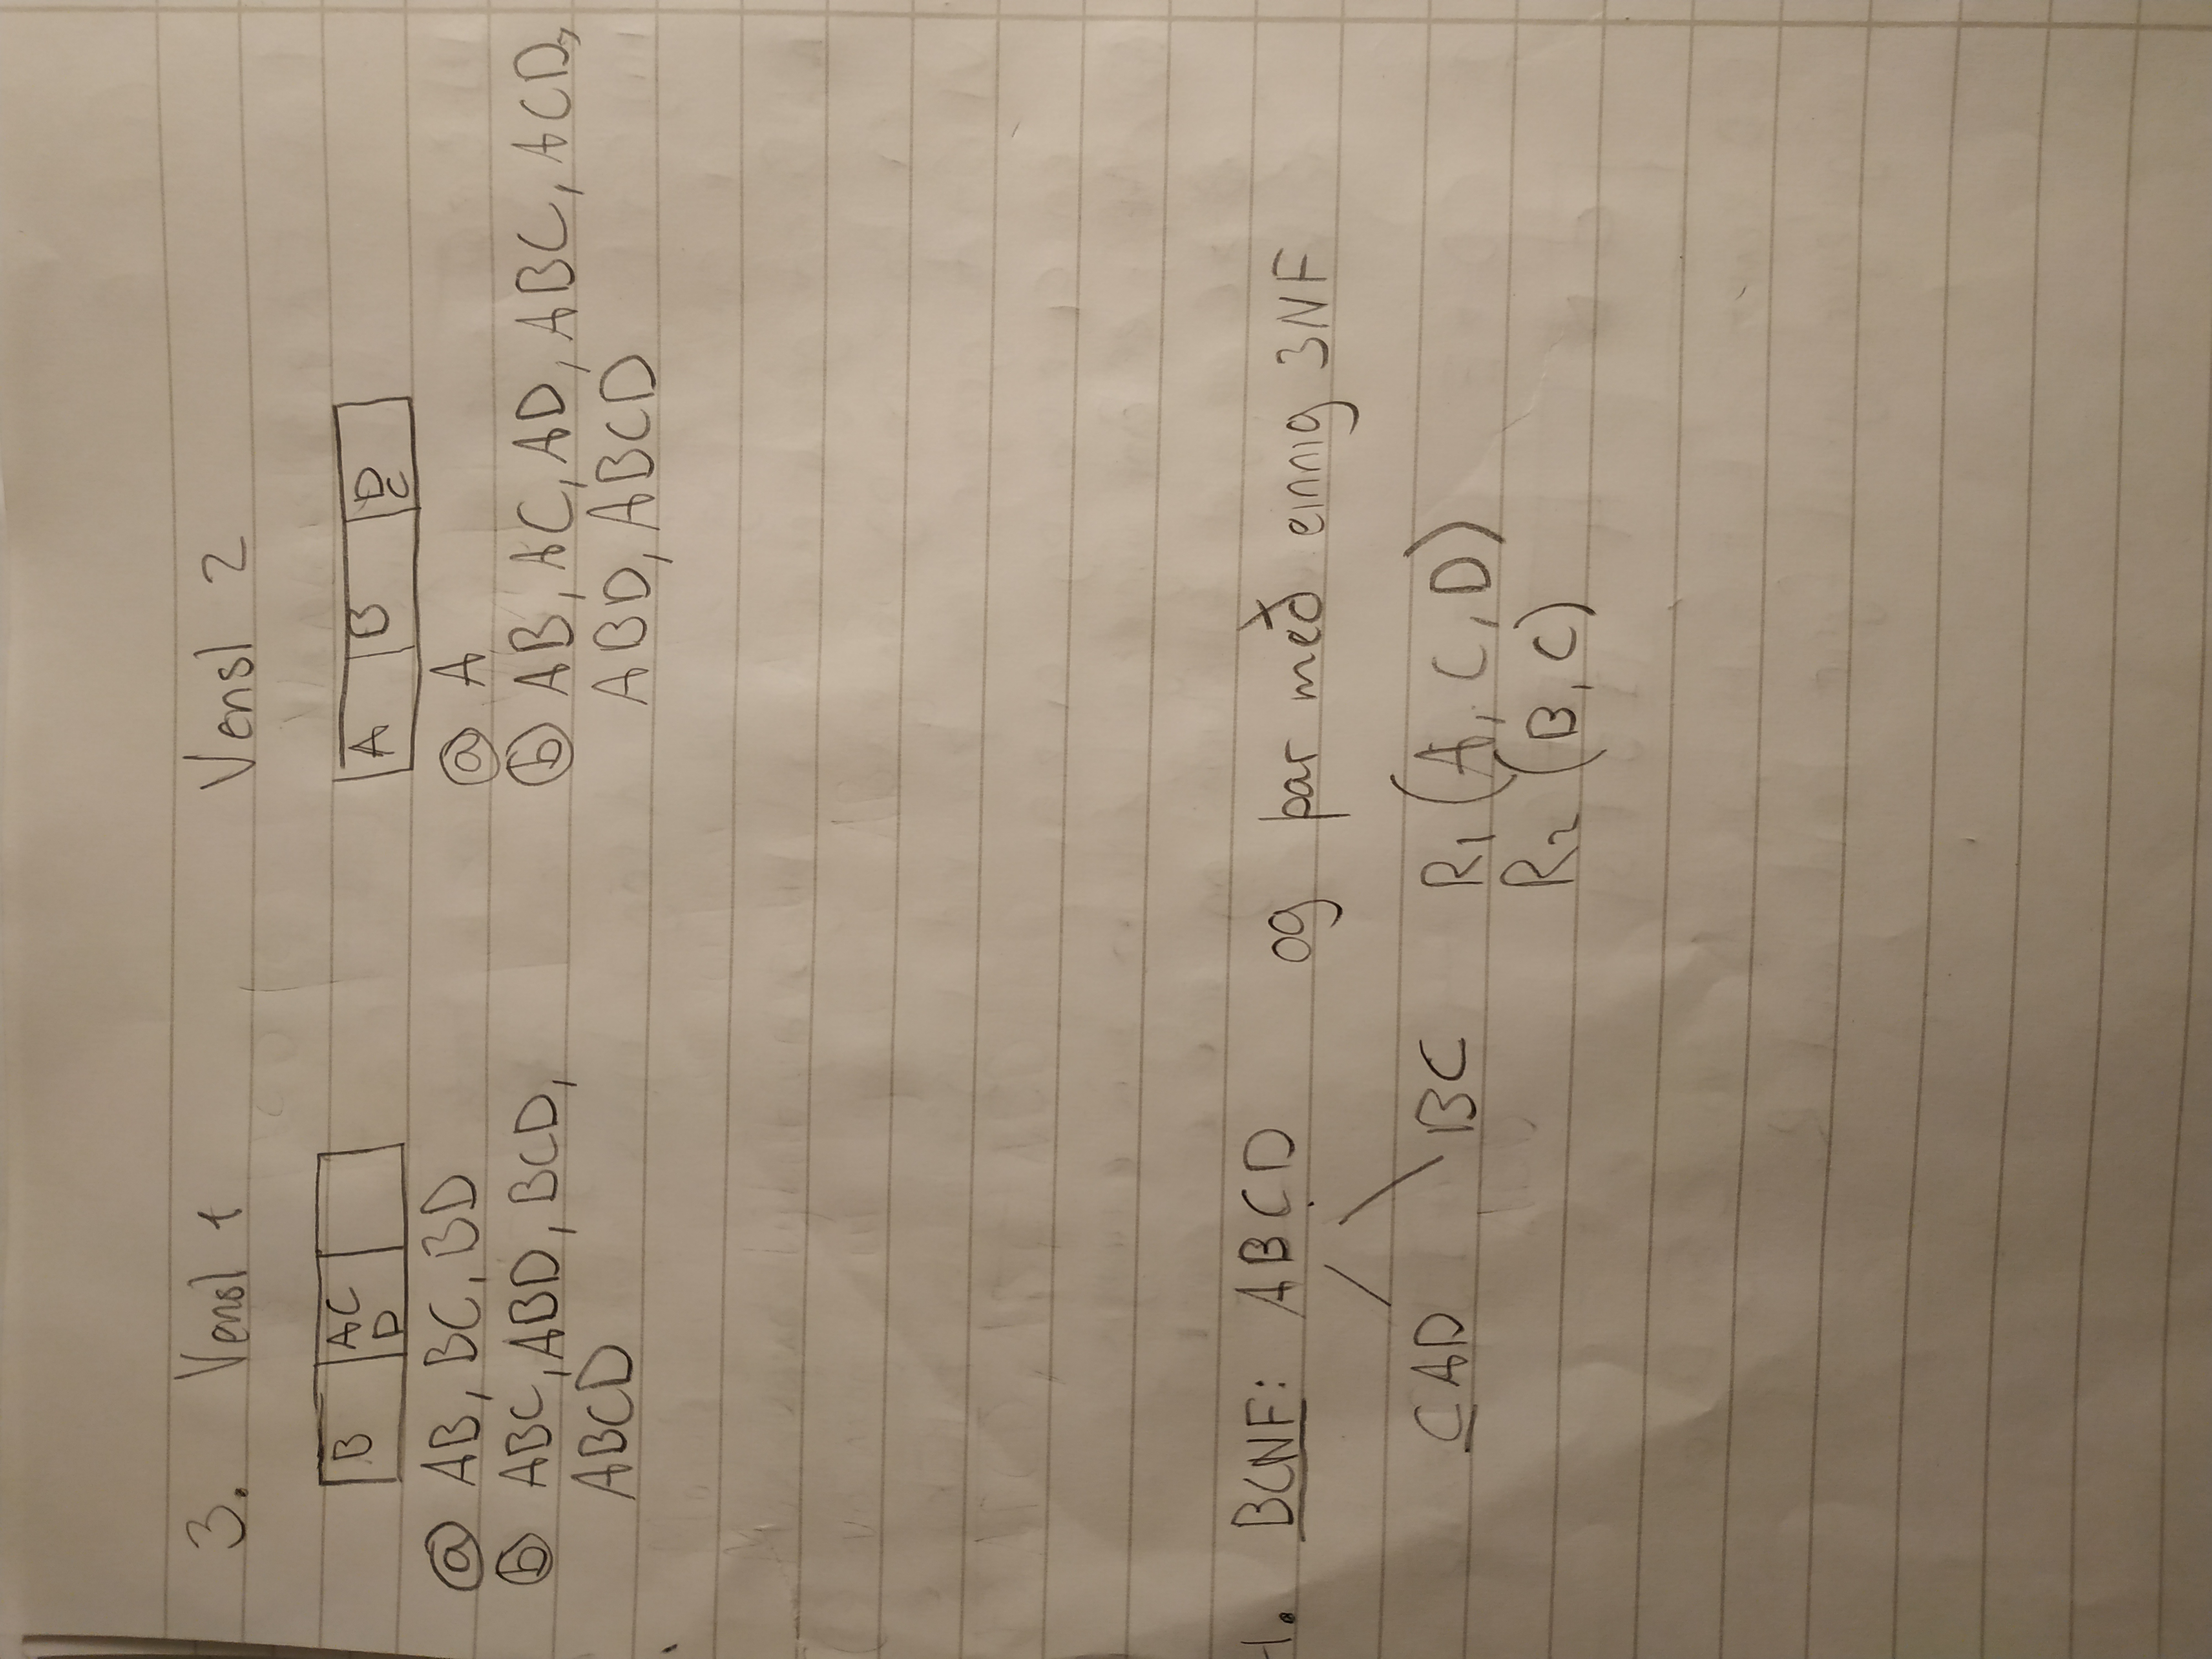 3. Vensl 1
B AC
D
ⓐ AB, BC, BD
ⓑ ABC, ABD, BCD,
ABCD
Vensl 2
A B D
C
ⓐ A
ⓑ AB, AC, AD, ABC, ACD,
ABD, ABCD
BCNF: ABCD og þar með einnig 3NF
CAD BC R1 (A, C, D)
R2 (B, C)